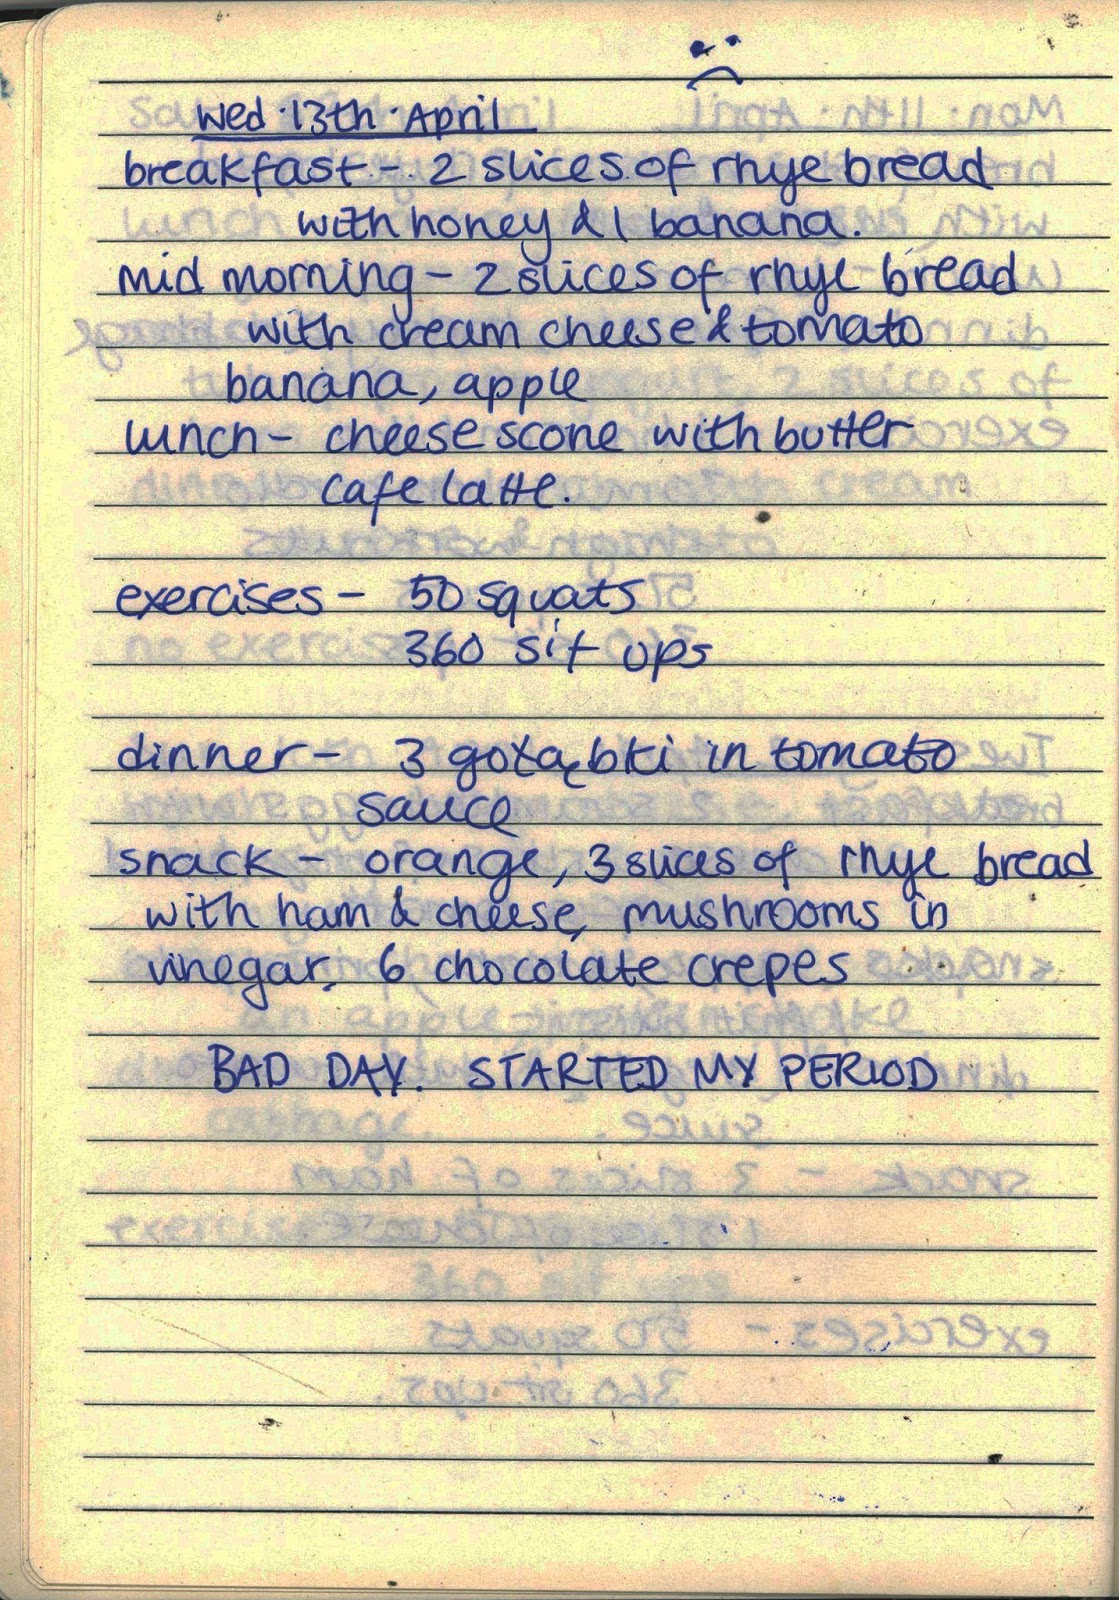 Wed·13th·April
breakfast - 2 slices of rhye bread
with honey & 1 banana.
mid morning - 2 slices of rhye bread
with cream cheese & tomato
banana, apple
lunch - cheese scone with butter
cafe latte.
exercises - 50 squats
360 sit ups
dinner - 3 gołąbki in tomato
sauce
snack - orange, 3 slices of rhye bread
with ham & cheese, mushrooms in
vinegar, 6 chocolate crepes
BAD DAY. STARTED MY PERIOD